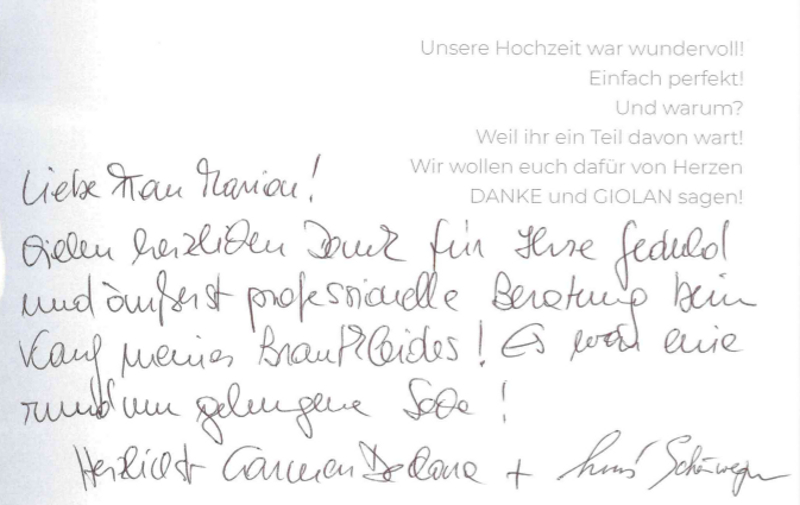 Unsere Hochzeit war wundervoll!
Einfach perfekt!
Und warum?
Weil ihr ein Teil davon wart!
Wir wollen euch dafür von Herzen
DANKE und GIOLAN sagen!
Liebe Frau Marion!
Vielen herzlichen Dank für Ihre Geduld
und äußerst professionelle Beratung beim
Kauf meines Brautkleides! Es war eine
rundum gelungene Sache!
Herzlichst Carmen +